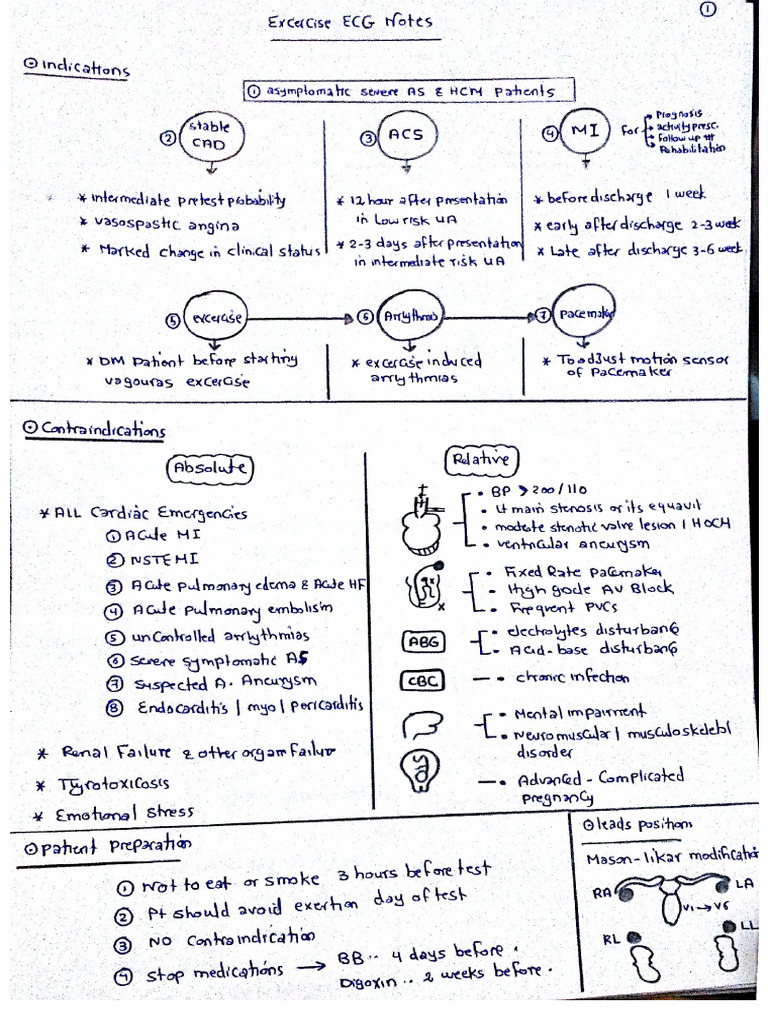 ①
Excercise ECG Notes
⊙ Indications
① asymptomatic severe AS & HCM Patients
② stable CAD
③ ACS
④ MI For
Prognosis
activity presc.
Follow up ttt
Rehabilitation
* intermediate pretest probability
* vasospastic angina
* Marked change in clinical status
* 12 hour after presentation
in Low risk UA
* 2-3 days after presentation
in intermediate risk UA
* before discharge 1 week
* early after discharge 2-3 week
* Late after discharge 3-6 week
⑤ excercise
⑥ Arrythmia
⑦ Pacemaker
* DM Patient before starting
vagouras excercise
* excercise induced
arrythmias
* To adjust motion sensor
of Pacemaker
⊙ Contraindications
Absolute
* All Cardiac Emergencies
① Acute MI
② NSTEMI
③ Acute pulmonary edema & Acute HF
④ Acute Pulmonary embolism
⑤ uncontrolled arrhythmias
⑥ severe symptomatic AS
⑦ Suspected A. Aneurysm
⑧ Endocarditis / myo / Pericarditis
* Renal Failure & other organ failure
* Tyrotoxicosis
* Emotional stress
Relative
• BP > 200/110
• Lt main stenosis or its equavit
• modrate stenotic valve lesion / HOCM
• ventricular aneurysm
• Fixed Rate Pacemaker
• High grade AV Block
• Frequent PVCs
ABG
• electrolytes disturbance
• Acid-base disturbance
CBC — • chronic infection
• Mental impairment
• Neuromuscular / musculoskeletal
disorder
— • Advanced - Complicated
pregnancy
⊙ Patient Preparation
① Not to eat or smoke 3 hours before test
② Pt should avoid exertion day of test
③ No Contraindication
④ Stop medications → BB .. 4 days before .
Digoxin .. 2 weeks before .
⊙ leads position
Mason-likar modification
RA LA
V1→V6
RL LL